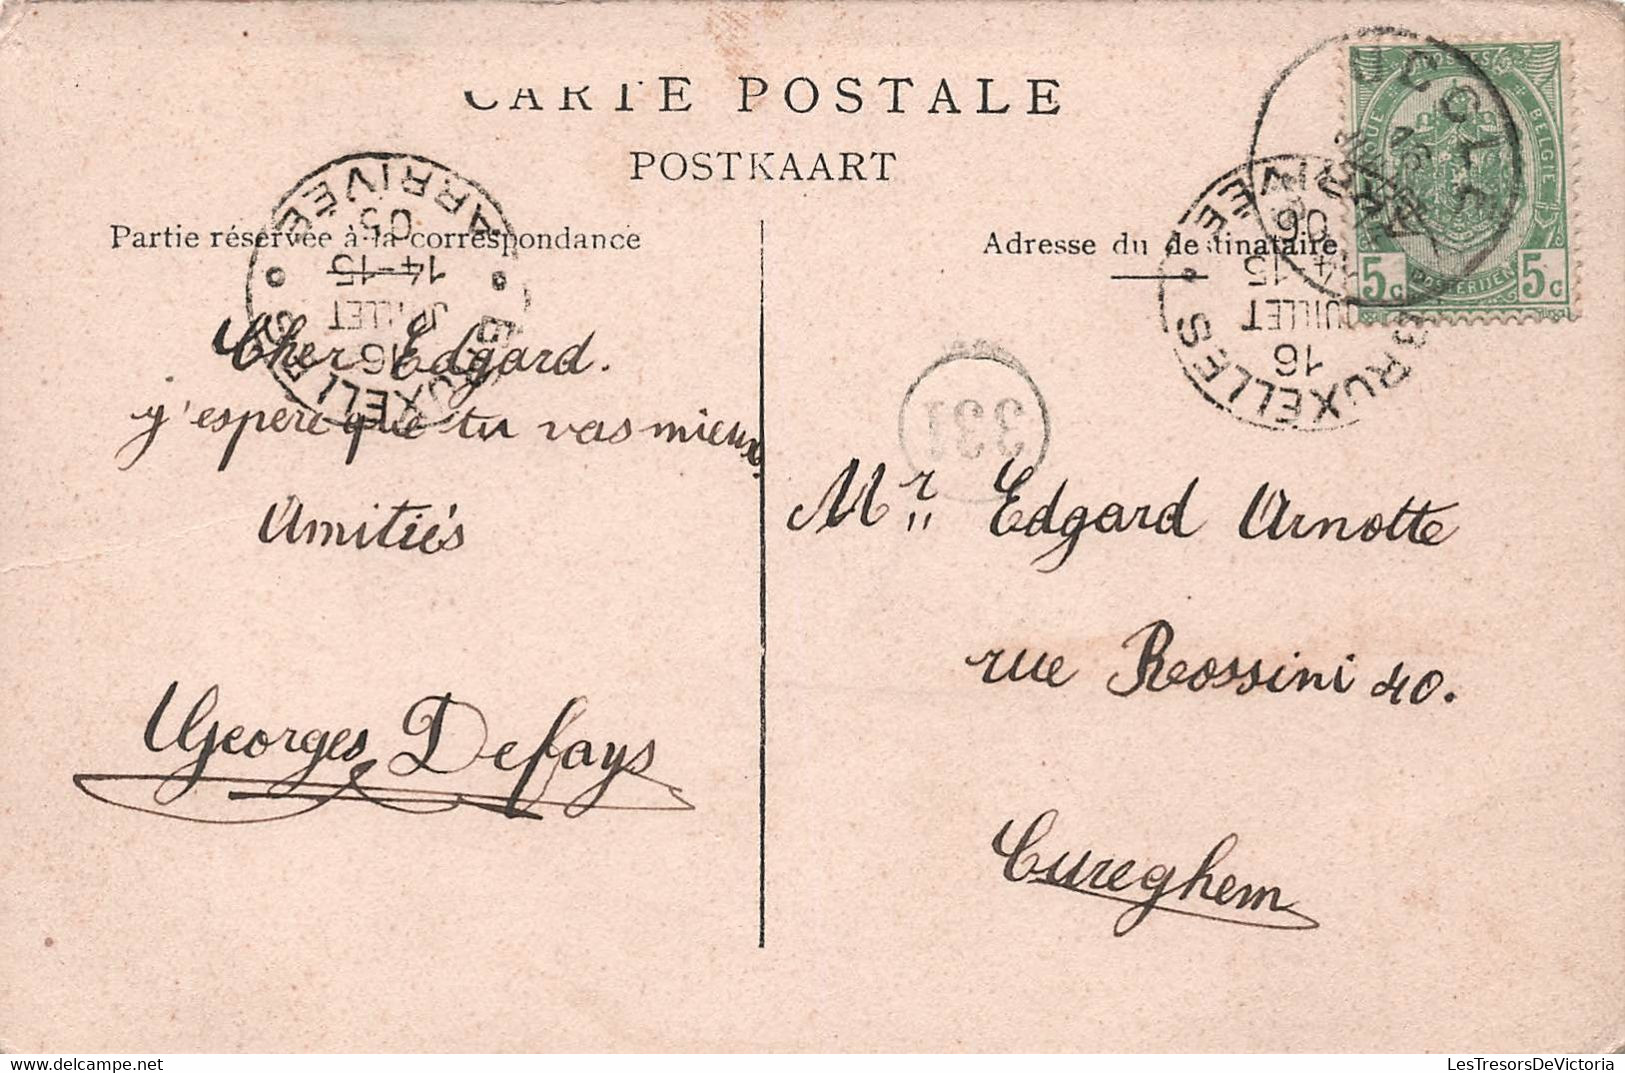 CARTE POSTALE
POSTKAART
Partie réservée à la correspondance
Adresse du destinataire
BRUXELLES
ARRIVÉE
16
JUILLET
14-15
05
BRUXELLES
ARRIVÉE
16
JUILLET
15
06
UCCLE
BELGIE
POSTERIJEN
5c
5c
331
Cher Edgard.
j'espere que tu vas mieux.
Amitiés
Georges Defays
Mr Edgard Arnotte
rue Rossini 40.
Cureghem
LesTresorsDeVictoria